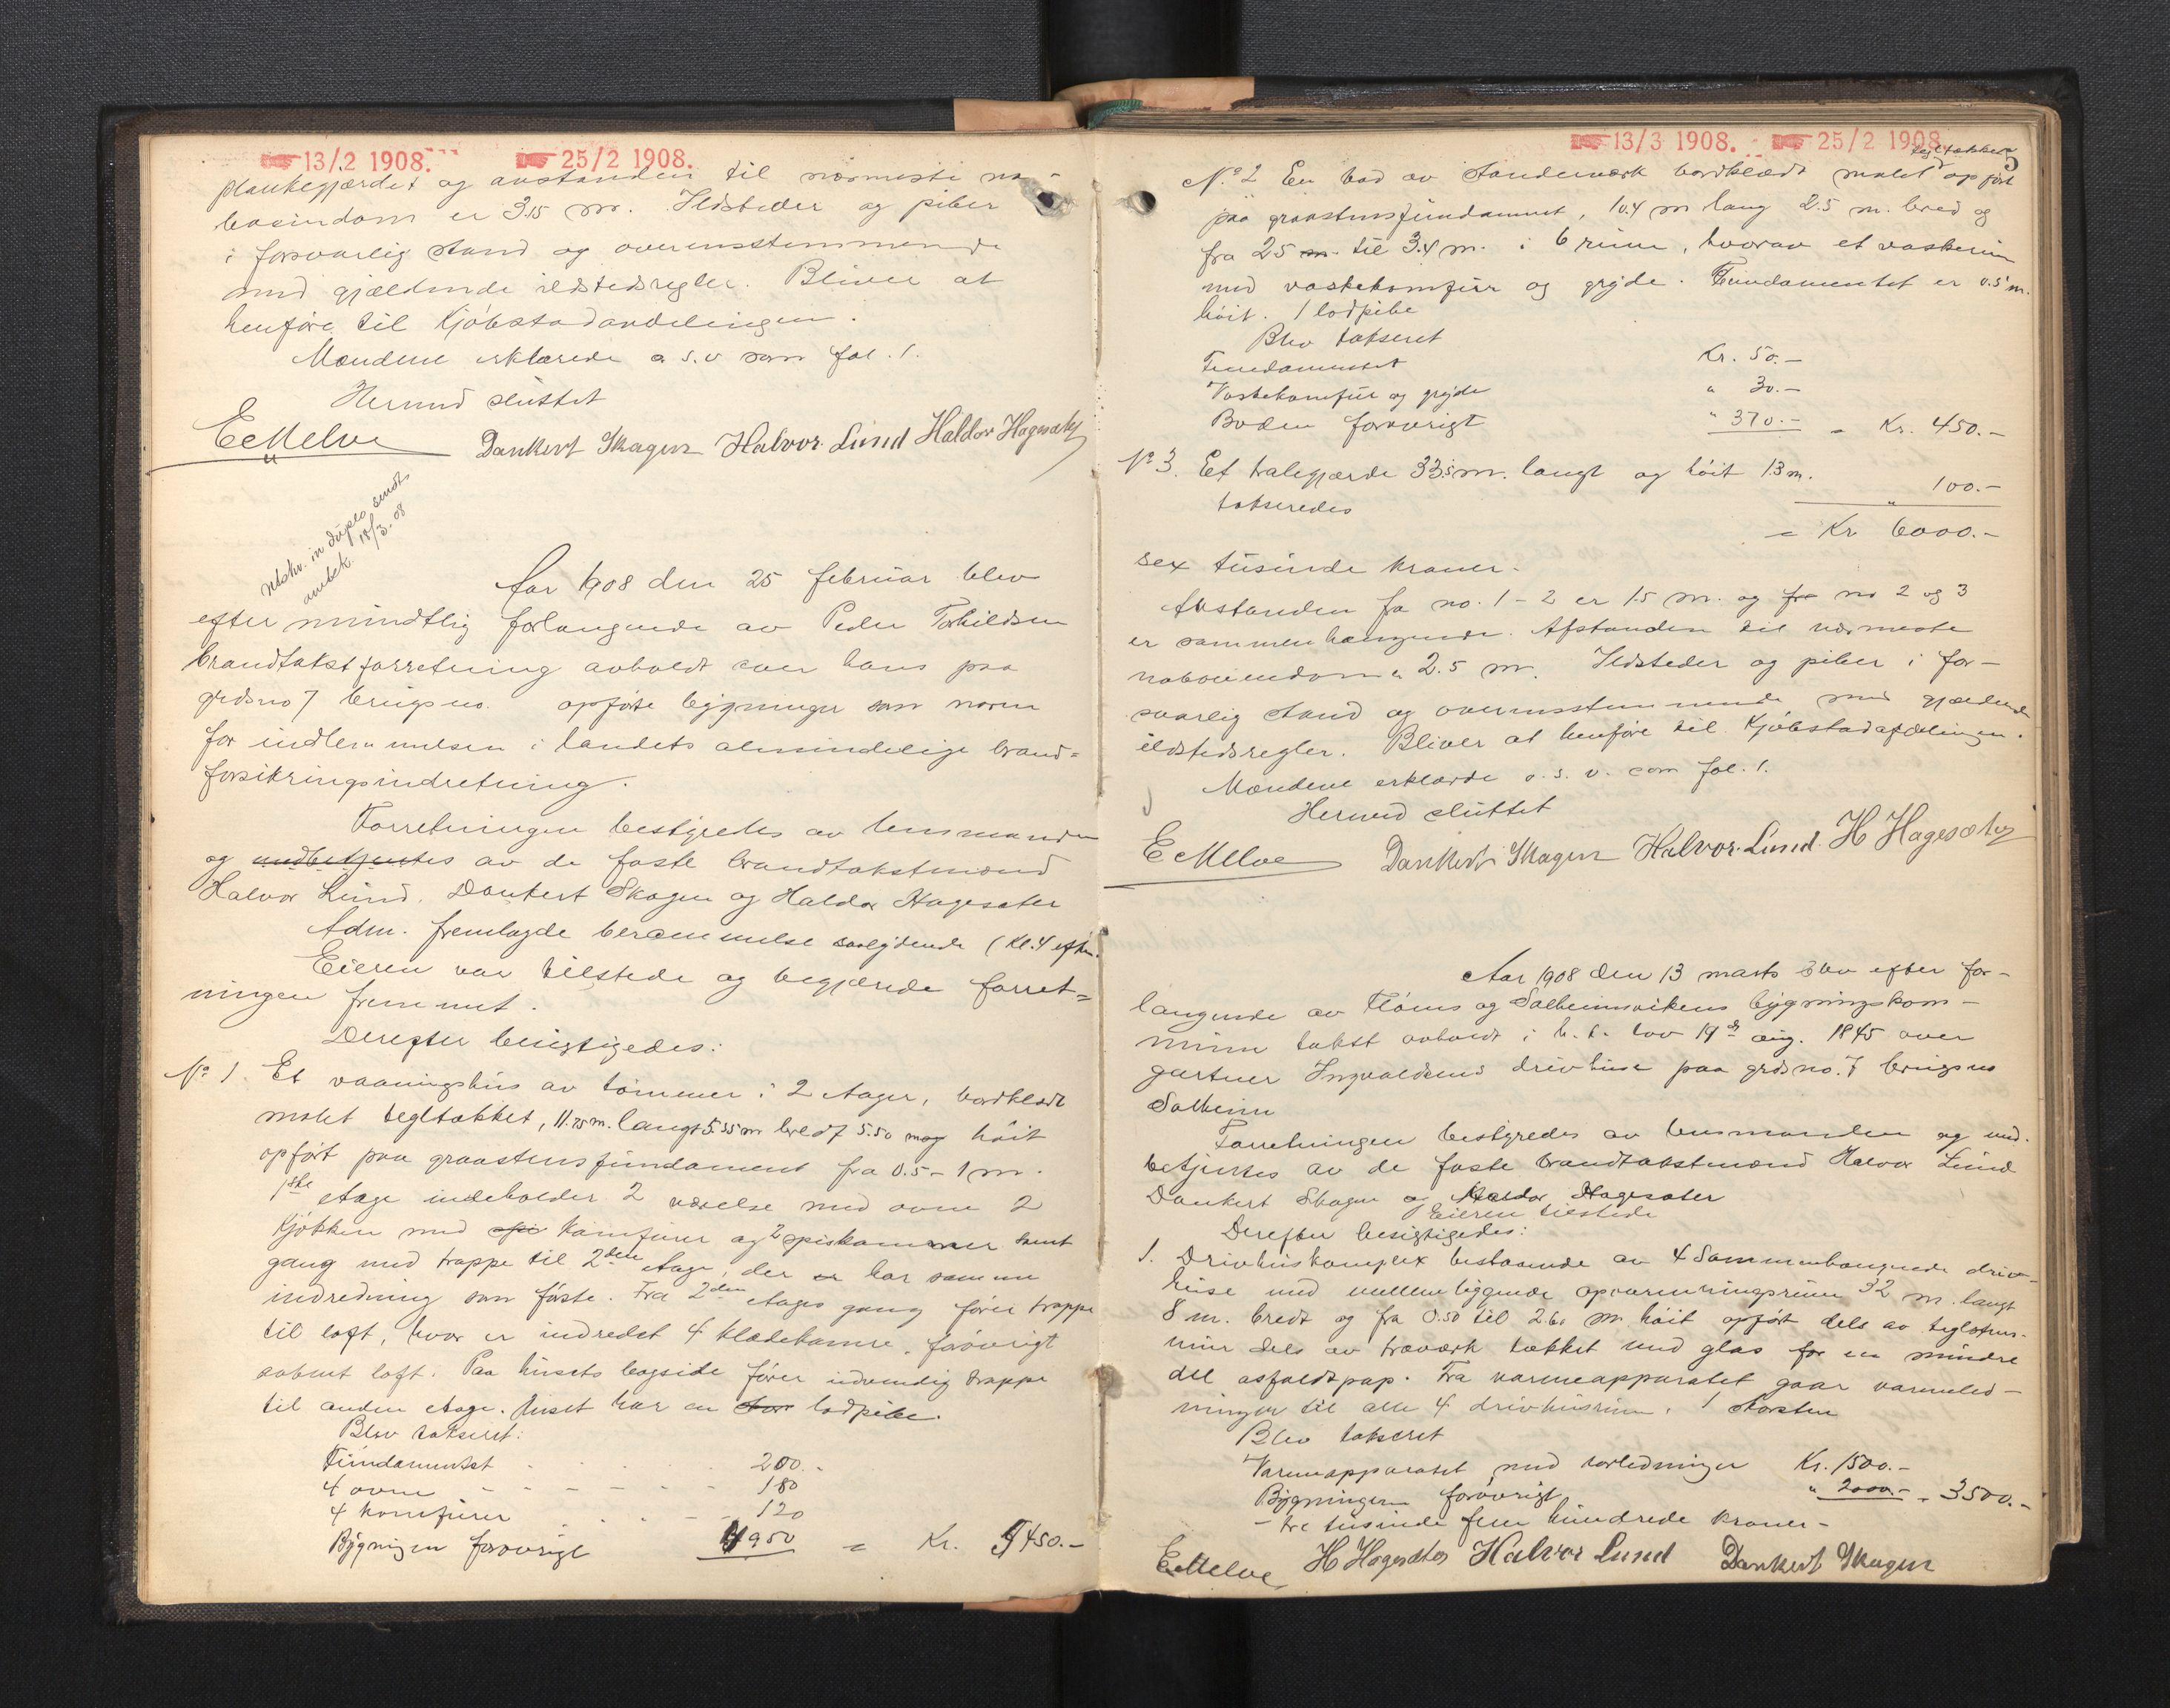 13/2 1908. 25/2 1908.
plankegjærdet og avstanden til nærmeste na-
boeiendom er 3.15 m. Ildsteder og piber
i forsvarlig stand og overensstemmende
med gjældende ildstedsregler. Bliver at
henføre til Kjøbstadavdelingen.
Mændene erklærede o.s.v som fol. 1.
Hermed sluttet
E Melve Dankert Skagen Halvor Lund Haldor Hagesæter
Utskr. in duplo sendt
ambek. 18/3. 08
Aar 1908 den 25 februar blev
efter mundtlig forlangende av Peder Torkildsen
brandtakstforretning avholdt over hans paa
grdsno 7 brugsno. opførte bygninger som norm
for indlemmelsen i landets almindelige brand=
forsikringsindretning.
Forretningen bestyredes av lensmanden
og medbetjentes av de faste brandtakstmænd
Halvor Lund, Dankert Skagen og Haldor Hagesæter
Adm. fremlagde berammelse saalydende (Kl. 4 efterm.
Eieren var tilstede og begjærede forret=
ningen fremmet.
Derefter besigtigedes:
No 1. Et vaaningshus av tømmer i 2 etager, bordklædt
malet tegltækket, 11.75 m. langt 5.55 m bredt 5.50 m høit
opført paa graastensfundament fra 0.5 - 1 m.
1ste etage indeholder 2 værelse med ovne 2
kjøkken med komfurer og 2 spiskammer samt
gang med trappe til 2den etage, der er har samme
indredning som første. Fra 2den etages gang fører trappe
til loft, hvor er indredet 4 klædekamre, forøvrigt
aabent loft. Paa husets bagside fører udvendig trappe
til anden etage. Huset har en lodpibe.
Blev takseret:
Fundamentet 200.-
4 ovne 180
4 komfurer 120
Bygningen forøvrigt 4950 = Kr. 5450.-
13/3 1908. 25/2 1908.
5
tegltækket
No 2 En bod av stenderværk bordklædt malet opført
paa graastensfundament, 10.4 m lang 2.5 m. bred og
fra 2.5 m. til 3.4 m. i 6 rum, hvorav et vaskerum
med vaskekomfur og gryde. Fundamentet er 0.5 m.
høit. 1 lodpibe
Blev takseret
Fundamentet Kr. 50.-
Vaskekomfur og gryde " 30.-
Boden forøvrigt " 370.- = Kr. 450.-
No 3. Et halegjærde 33.5 m. langt og høit 1.3 m.
takseredes " 100.-
= Kr 6000.-
sex tusinde kroner.
Avstanden fra no. 1 - 2 er 1.5 m. og fra no 2 og 3
er sammenhængende. Afstanden til nærmeste
naboeiendom er 2.5 m. Ildsteder og piber i for-
svarlig stand og overensstemmende med gjældende
ildstedsregler. Bliver at henføre til Kjøbstadafdelingen.
Mændene erklærde o.s.v. som fol. 1.
Hermed sluttet
E Melve Dankert Skagen Halvor Lund H Hagesæter
Aar 1908 den 13 marts blev efter for-
langende av Fløens og Solheimsvikens bygningskom-
mission takst avholdt i h. t. lov 19de aug. 1845 over
gartner Ingvaldsens drivhuse paa grdsno. 7 brugsno
Solheim
Forretningen bestyredes av lensmanden og med-
betjentes av de faste brandtakstmænd Halvor Lund
Dankert Skagen og Haldor Hagesæter
Eieren tilstede
Derefter besigtigedes:
1. Drivhuskomplex bestaaende av 4 sammenhængende driv-
huse med mellemliggende opvarmningsrum 32 m. langt
8 m. bredt og fra 0.50 til 2.60 m. høit opført dels av teglstens-
mur dels av træværk tækket med glas for en mindre
del asfaldtpap. Fra varmeapparatet gaar varmeled-
ninger til alle 4 drivhusrum. 1 skorsten
Blev takseret
Varmeapparatet med rørledninger Kr. 1500.-
Bygningen forøvrigt " 2000.- = 3500.-
- tre tusinde fem hundrede kroner -
E Melve H Hagesæter Halvor Lund Dankert Skagen